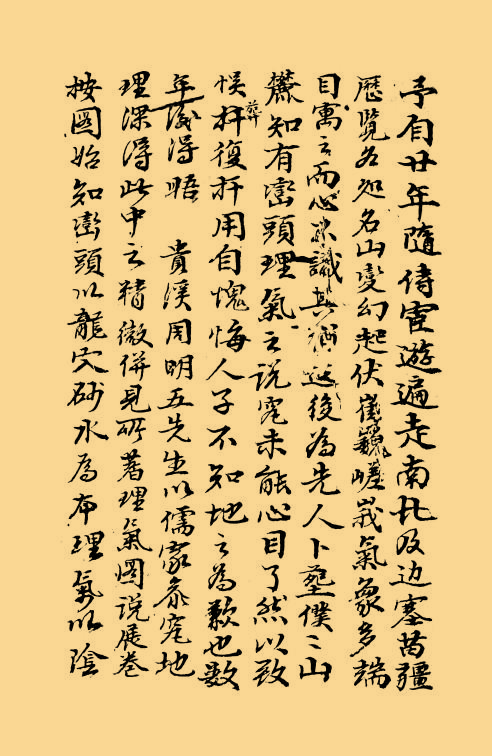 予自廿年隨侍宦遊遍走南北及边塞苗疆
歷覽各处名山變幻起伏崔巍嵯峩氣象多端
目寓之而心未識其酒迨後為先人卜塟僕僕山
麓知有巒頭理氣之说究未能心目了然以致
悮扦葬復扦用自愧悔人子不知地之為歎也数
年後得晤 貴溪周明五先生以儒家叅究地
理深得此中之精微併見所著理氣図说展卷
按圖始知巒頭以龍穴砂水為布理氣以陰